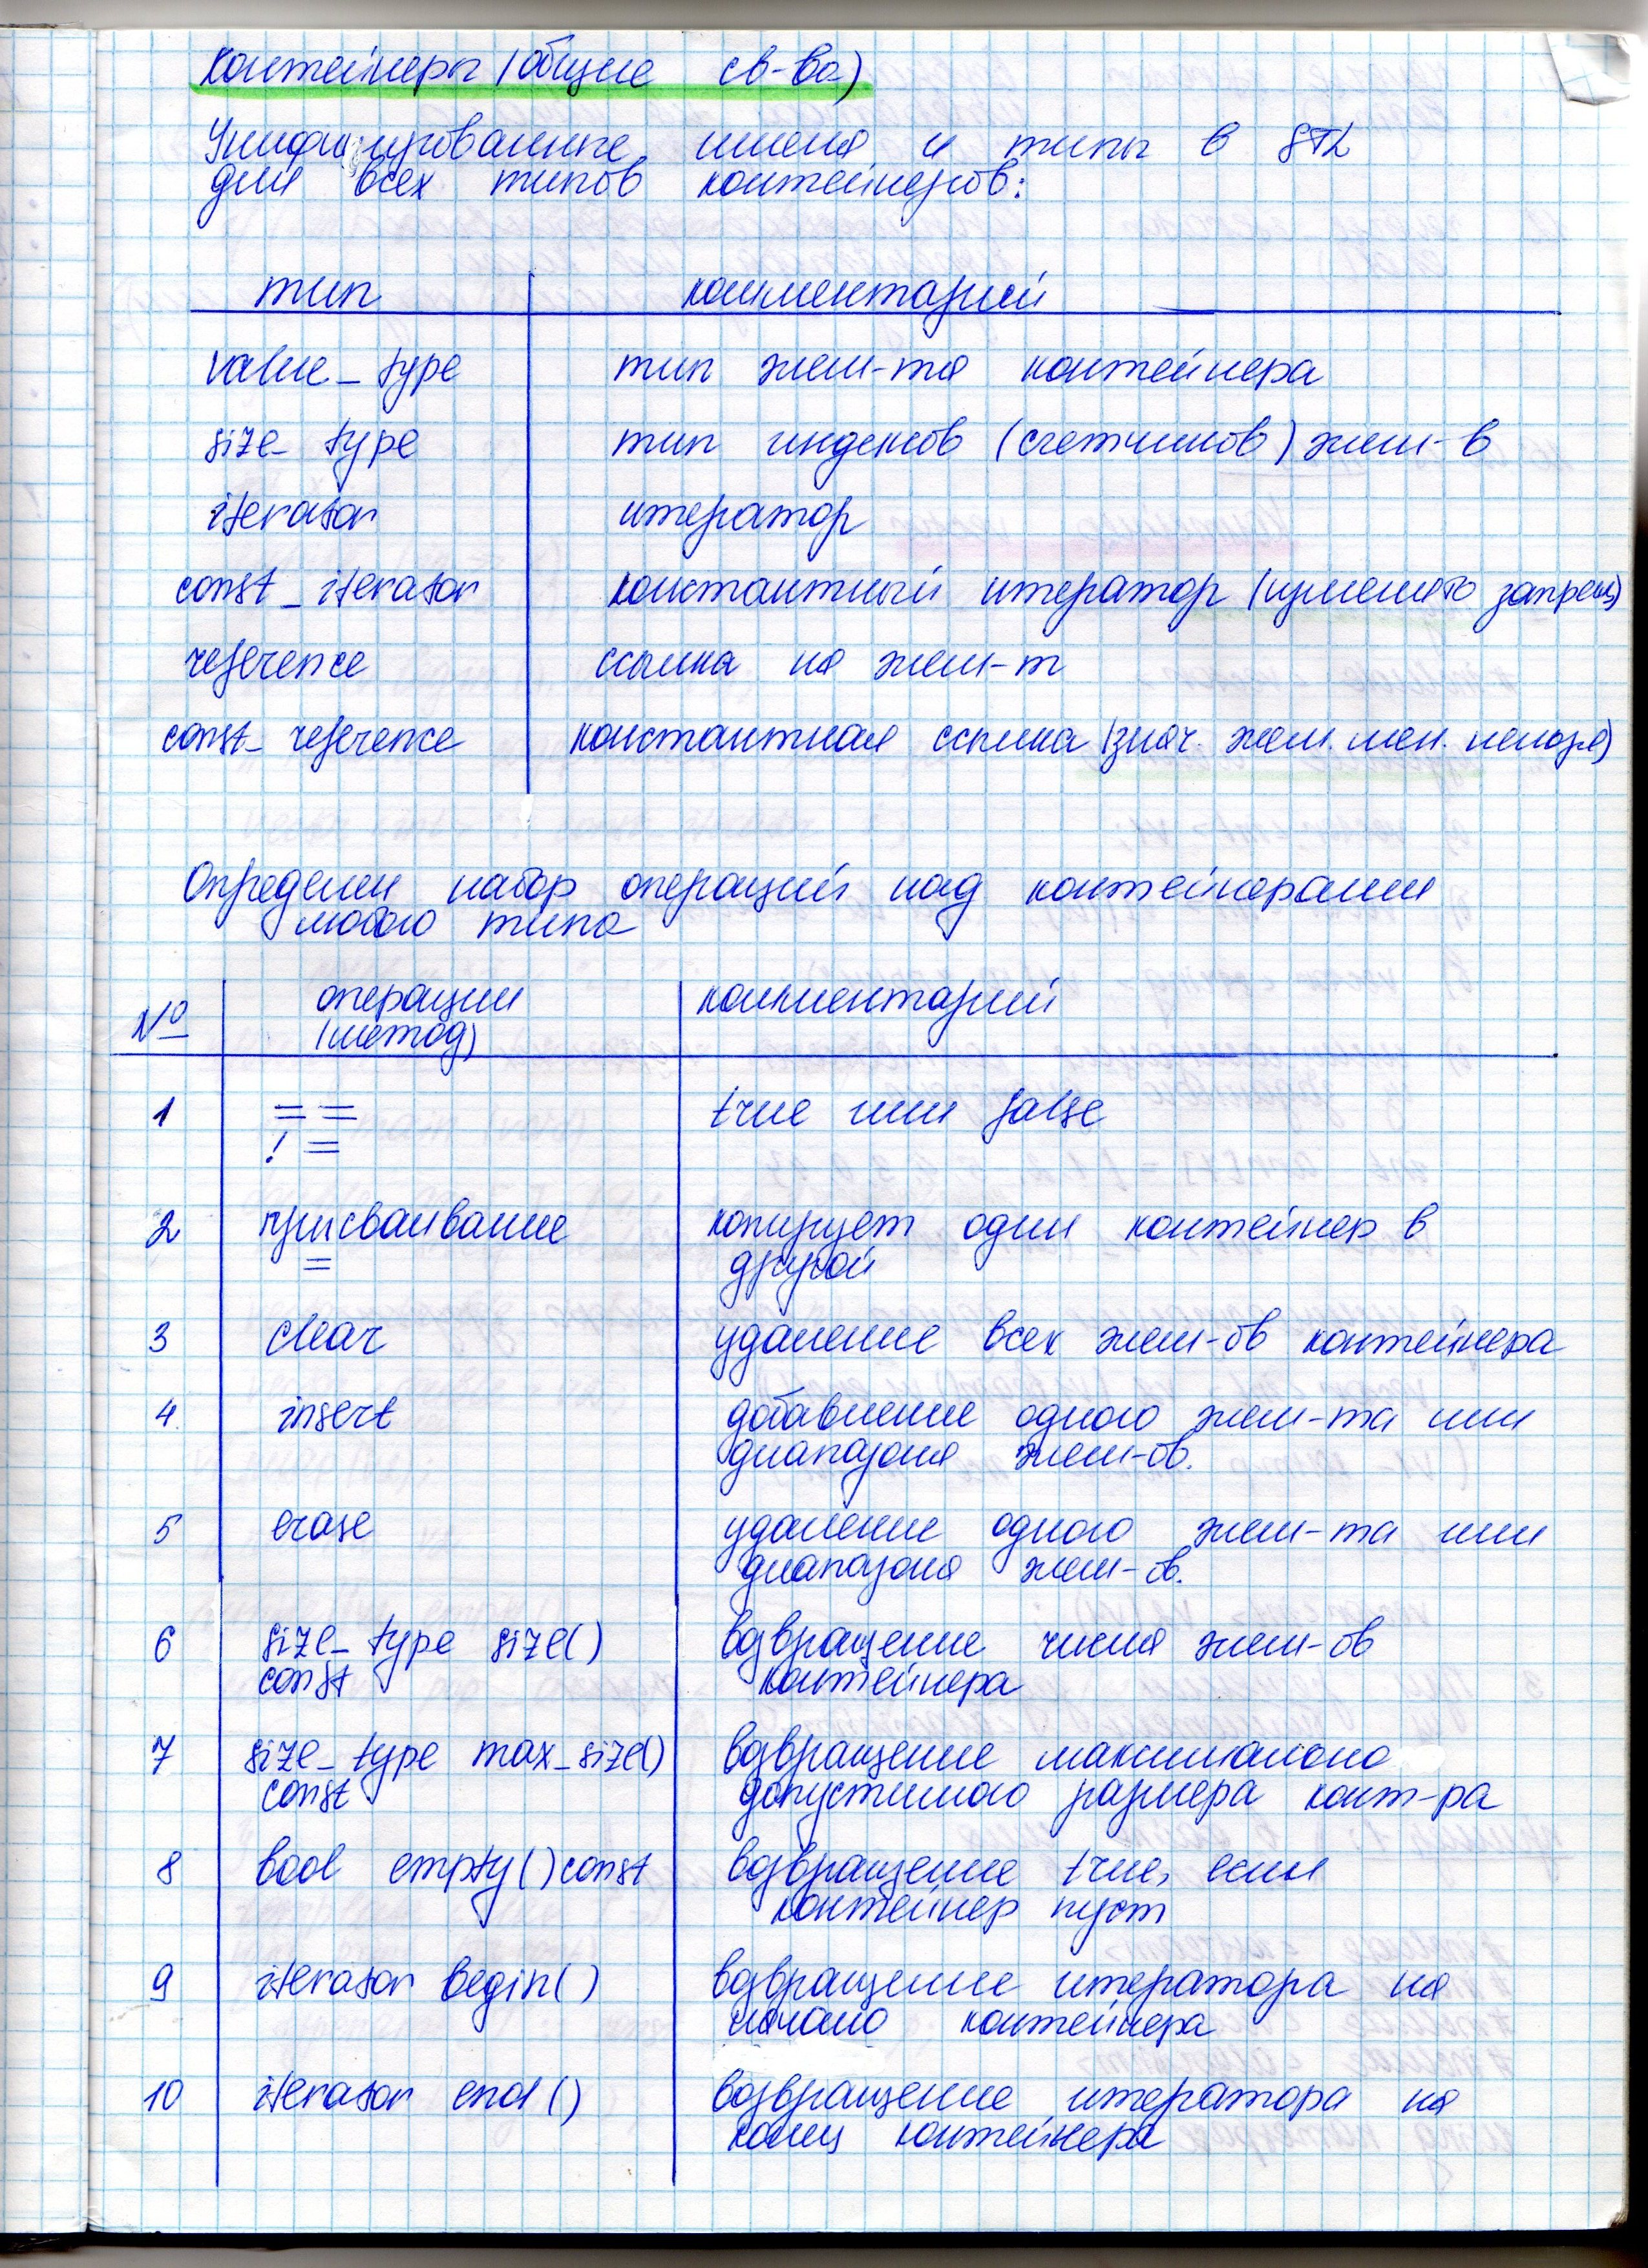 Контейнеры (общие св-ва)
Унифицированные имена и типы в STL
для всех типов контейнеров:
тип комментарий
value_type тип элем-та контейнера
size_type тип индексов (счетчиков) элем-в
iterator итератор
const_iterator константный итератор (изменять запрещ)
reference ссылка на элем-т
const_reference константная ссылка (знач. элем. мен. нельзя)
Определен набор операций над контейнерами
любого типа
№ операции комментарий
(метод)
1 == true или false
!=
2 присваивание копирует один контейнер в
= другой
3 clear удаление всех элем-ов контейнера
4. insert добавление одного элем-та или
диапазона элем-ов.
5 erase удаление одного элем-та или
диапазона элем-ов.
6 size_type size() возвращение числа элем-ов
const контейнера
7 size_type max_size() возвращение максимально
const допустимого размера конт-ра
8 bool empty() const возвращение true, если
контейнер пуст
9 iterator begin() возвращение итератора на
начало контейнера
10 iterator end() возвращение итератора на
конец контейнера